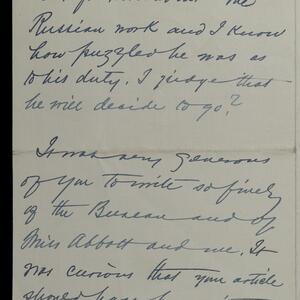 the
Russian work and I know
how puzzled he was as
to his duty. I judge that
he will decide to go?
It was very generous
of you to write so finely
of the Bureau and of
Miss Abbott and me. It
was curious that your article
should have